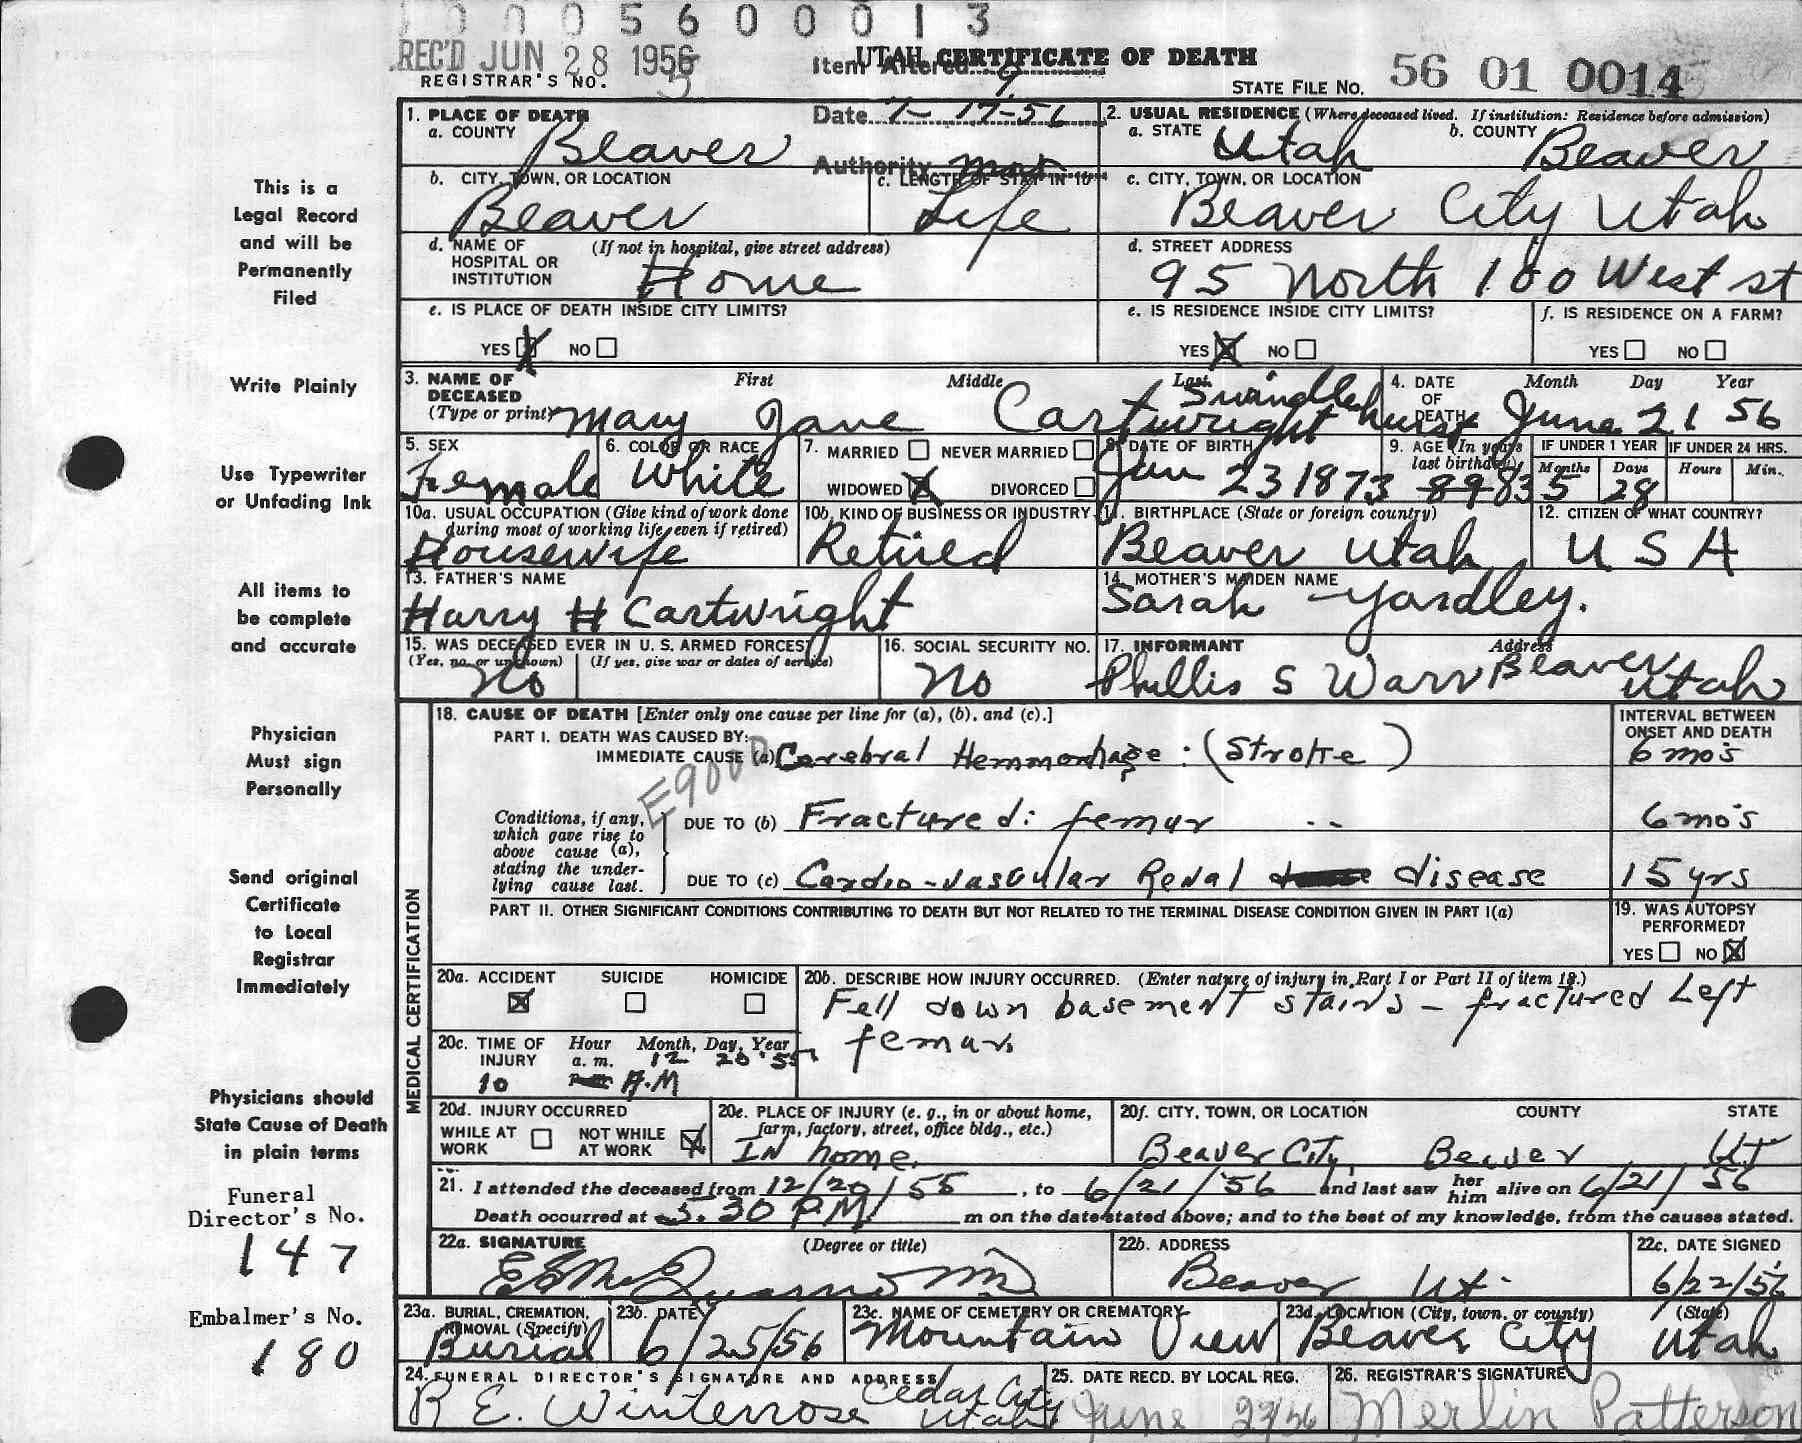 0 0 0 5 6 0 0 0 1 3
REC'D JUN 28 1956
UTAH CERTIFICATE OF DEATH
Item Altered 9
REGISTRAR'S NO. 5
STATE FILE NO. 56 01 0014
Date 7-17-56
Authority
1. PLACE OF DEATH
a. COUNTY Beaver
2. USUAL RESIDENCE (Where deceased lived. If institution: Residence before admission)
a. STATE Utah b. COUNTY Beaver
b. CITY, TOWN, OR LOCATION Beaver
c. LENGTH OF STAY IN 1b Life
c. CITY, TOWN, OR LOCATION Beaver City Utah
d. NAME OF HOSPITAL OR INSTITUTION (If not in hospital, give street address) Home
d. STREET ADDRESS 95 North 100 West st
e. IS PLACE OF DEATH INSIDE CITY LIMITS?
YES X NO
e. IS RESIDENCE INSIDE CITY LIMITS?
YES X NO
f. IS RESIDENCE ON A FARM?
YES NO
3. NAME OF DECEASED (Type or print) First Middle Last
Mary Jane Cartwright Swindlehurst
4. DATE OF DEATH Month Day Year
June 21 56
5. SEX Female
6. COLOR OR RACE White
7. MARRIED NEVER MARRIED
WIDOWED X DIVORCED
8. DATE OF BIRTH Jan 23 1873
9. AGE (In years last birthday) 89 83
IF UNDER 1 YEAR Months 5 Days 28
IF UNDER 24 HRS. Hours Min.
10a. USUAL OCCUPATION (Give kind of work done during most of working life, even if retired) Housewife
10b. KIND OF BUSINESS OR INDUSTRY Retired
11. BIRTHPLACE (State or foreign country) Beaver Utah
12. CITIZEN OF WHAT COUNTRY? U S A
13. FATHER'S NAME Harry H Cartwright
14. MOTHER'S MAIDEN NAME Sarah Yardley.
15. WAS DECEASED EVER IN U. S. ARMED FORCES?
(Yes, no, or unknown) (If yes, give war or dates of service)
No
16. SOCIAL SECURITY NO. No
17. INFORMANT Address
Phillis S Warr Beaver Utah
18. CAUSE OF DEATH [Enter only one cause per line for (a), (b), and (c).]
INTERVAL BETWEEN ONSET AND DEATH
PART I. DEATH WAS CAUSED BY:
IMMEDIATE CAUSE (a) Cerebral Hemmorhage : (Stroke) 6 mo's
E9000
Conditions, if any, which gave rise to above cause (a), stating the underlying cause last.
DUE TO (b) Fractured: femur 6 mo's
DUE TO (c) Cardio-vascular Renal disease 15 yrs
PART II. OTHER SIGNIFICANT CONDITIONS CONTRIBUTING TO DEATH BUT NOT RELATED TO THE TERMINAL DISEASE CONDITION GIVEN IN PART I(a)
19. WAS AUTOPSY PERFORMED?
YES NO X
MEDICAL CERTIFICATION
20a. ACCIDENT SUICIDE HOMICIDE
X
20b. DESCRIBE HOW INJURY OCCURRED. (Enter nature of injury in Part I or Part II of item 18.)
Fell down basement stairs - fractured Left
femur
20c. TIME OF INJURY Hour Month, Day, Year
a. m. 12 20 '55
10 p.m. A.M
20d. INJURY OCCURRED
WHILE AT WORK NOT WHILE AT WORK X
20e. PLACE OF INJURY (e. g., in or about home, farm, factory, street, office bldg., etc.)
In home.
20f. CITY, TOWN, OR LOCATION COUNTY STATE
Beaver City, Beaver Ut
21. I attended the deceased from 12/20/55, to 6/21/'56 and last saw her him alive on 6/21/56
Death occurred at 5:30 P.M. m on the date stated above; and to the best of my knowledge, from the causes stated.
22a. SIGNATURE (Degree or title)
22b. ADDRESS Beaver Ut.
22c. DATE SIGNED 6/22/56
23a. BURIAL, CREMATION, REMOVAL (Specify) Burial
23b. DATE 6/25/56
23c. NAME OF CEMETERY OR CREMATORY Mountain View
23d. LOCATION (City, town, or county) (State)
Beaver City Utah
24. FUNERAL DIRECTOR'S SIGNATURE AND ADDRESS
R E. Winterrose Cedar City Utah
25. DATE RECD. BY LOCAL REG.
June 27/56
26. REGISTRAR'S SIGNATURE
Merlin Patterson
This is a
Legal Record
and will be
Permanently
Filed
Write Plainly
Use Typewriter
or Unfading Ink
All items to
be complete
and accurate
Physician
Must sign
Personally
Send original
Certificate
to Local
Registrar
Immediately
Physicians should
State Cause of Death
in plain terms
Funeral
Director's No.
147
Embalmer's No.
180